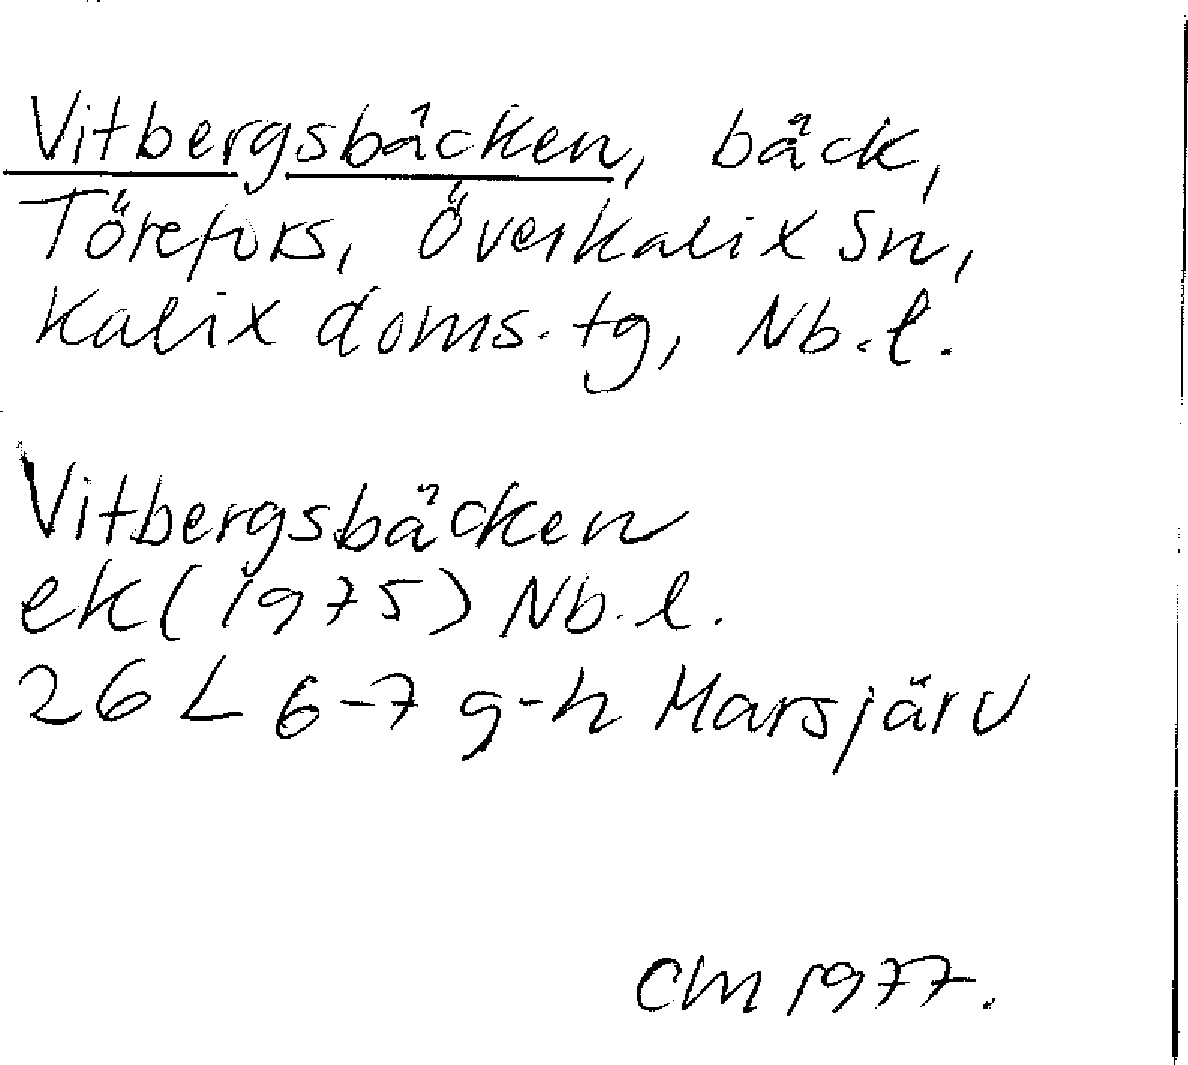 Vitbergsbäcken, bäck,
Törefors, Överkalix Sn,
Kalix doms. tg, Nb. l.
Vitbergsbäcken
ek (1975) Nb. l.
26 L 6-7 g-h Marsjärv
CM 1977.